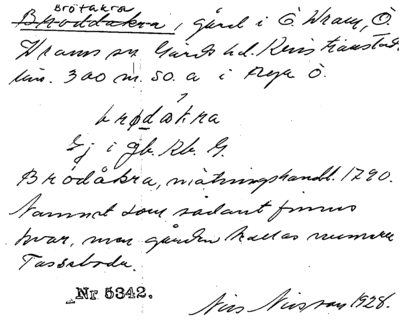 Brotåkra
Broddåkra, gård i Ö Vram, Ö.
Vrams sn Gärds hd. Kristianstads
län. 300 m. SO. a i Nya Ö.
brødåkra
Ej i gb. Kb. G.
Brödåkra, mätningshandl. 1790.
Namnet som sådant finns
kvar, men gården kallas numera
Tassaboda.
Nr 5342.
Nils Nilsson 1928.